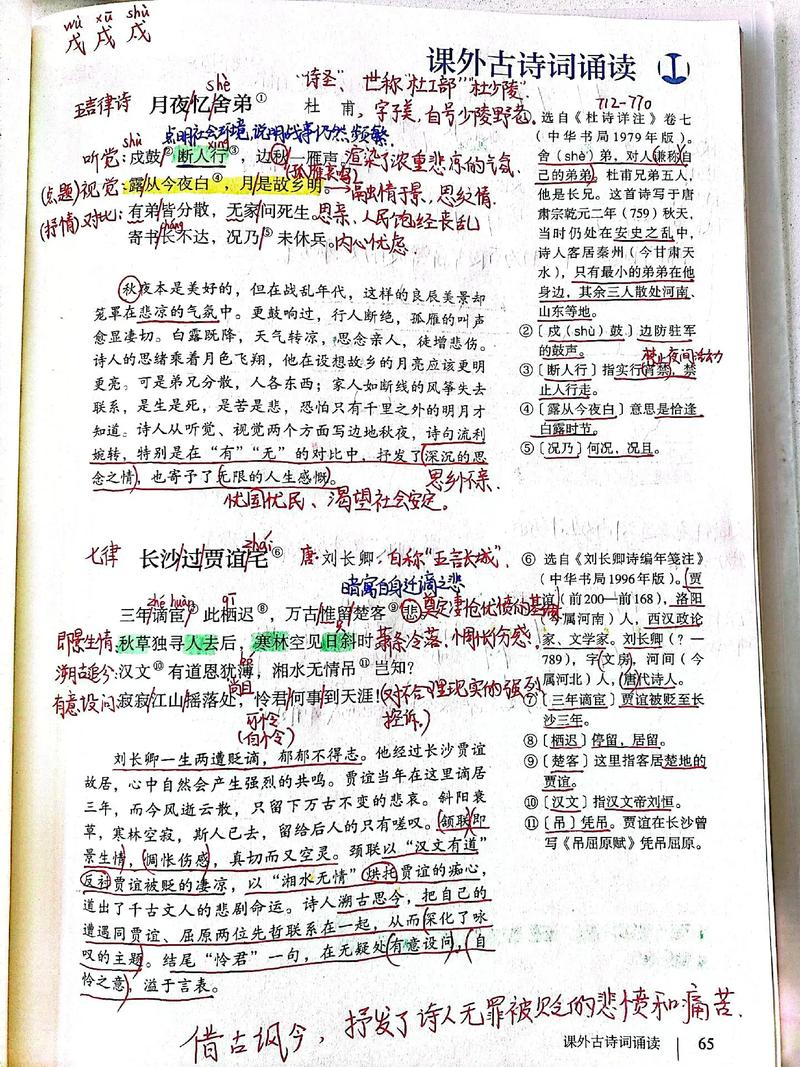 wù xū shù
戊 戌 戍
课外古诗词诵读
五言律诗 月夜忆舍弟① shè
杜 甫
“诗圣”、世称“杜工部”“杜少陵”
字子美,自号少陵野老
712-770
点明社会环境,说明战事仍然频繁
听觉:戍鼓②断人行③,边秋一雁声。渲染了浓重悲凉的气氛
shù
xíng
(孤雁哀鸣)
(点题)视觉:露从今夜白④,月是故乡明。融情于景,思乡情.
(抒情)对比:有弟皆分散,无家问死生。思亲、人民饱经丧乱
寄书长不达,况乃⑤未休兵。内心忧虑.
cháng
秋夜本是美好的,但在战乱年代,这样的良辰美景却
笼罩在悲凉的气氛中。更鼓响过,行人断绝,孤雁的叫声
愈显凄切。白露既降,天气转凉,思念亲人,徒增悲伤。
诗人的思绪乘着月色飞翔,他在设想故乡的月亮应该更明
更亮。可是弟兄分散,人各东西;家人如断线的风筝失去
联系,是生是死,是苦是悲,恐怕只有千里之外的明月才
知道。诗人从听觉、视觉两个方面写边地秋夜,诗句流利
婉转,特别是在“有”“无”的对比中,抒发了深沉的思
念之情,也寄予了无限的人生感慨。
思乡怀亲.
忧国忧民、渴望社会安定。
七律 长沙过贾谊宅⑥ zhái
唐·刘长卿,自称“五言长城”.
暗寓自身迁谪之悲
zhé huàn
qī
三年谪宦⑦此栖迟⑧,万古惟留楚客⑨悲。奠定凄怆忧愤的基调
即景生情:秋草独寻人去后,寒林空见日斜时。萧条冷落,惆怅伤感.
溯古追今:汉文⑩有道恩犹薄,湘水无情吊⑪岂知?
尚且
有意设问:寂寂江山摇落处,怜君何事到天涯!(对不合理现实的强烈
控诉,)
可怜
(自怜)
刘长卿一生两遭贬谪,郁郁不得志。他经过长沙贾谊
故居,心中自然会产生强烈的共鸣。贾谊当年在这里谪居
三年,而今风逝云散,只留下万古不变的悲哀。斜阳衰
草,寒林空寂,斯人已去,留给后人的只有嗟叹。颔联即
景生情,惆怅伤感,真切而又空灵。颈联以“汉文有道”
反衬贾谊被贬的凄凉,以“湘水无情”烘托贾谊的痴心,
道出了千古文人的悲剧命运。诗人溯古思今,把自己的
遭遇同贾谊、屈原两位先哲联系在一起,从而深化了咏
叹的主题。结尾“怜君”一句,在无疑处有意设问,自
怜之意,溢于言表。
借古讽今,抒发了诗人无罪被贬的悲愤和痛苦.
① 选自《杜诗详注》卷七
(中华书局1979年版)。
舍(shè)弟,对人谦称自
己的弟弟。杜甫兄弟五人,
他是长兄。这首诗写于唐
肃宗乾元二年(759)秋天,
当时仍处在安史之乱中,
诗人客居秦州(今甘肃天
水),只有最小的弟弟在他
身边,其余三人散处河南、
山东等地。
②〔戍(shù)鼓〕边防驻军
的鼓声。
禁止夜间活动
③〔断人行〕指实行宵禁,禁
止人行走。
④〔露从今夜白〕意思是恰逢
白露时节。
⑤〔况乃〕何况,况且。
⑥ 选自《刘长卿诗编年笺注》
(中华书局1996年版)。贾
谊(前200—前168),洛阳
(今属河南)人,西汉政论
家、文学家。刘长卿(?—
789),字文房,河间(今
属河北)人,唐代诗人。
⑦〔三年谪宦〕贾谊被贬至长
沙三年。
⑧〔栖迟〕停留,居留。
⑨〔楚客〕这里指客居楚地的
贾谊。
⑩〔汉文〕指汉文帝刘恒。
⑪〔吊〕凭吊。贾谊在长沙曾
写《吊屈原赋》凭吊屈原。
课外古诗词诵读 65